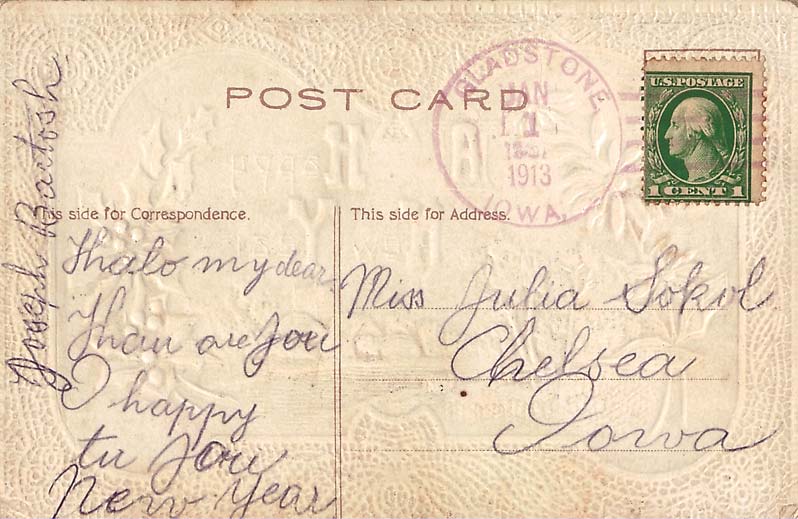 POST CARD
GLADSTONE
JAN
1
1913
IOWA.
U.S. POSTAGE
1 CENT 1
This side for Correspondence.
This side for Address.
Joseph Bartosh
Thalo my dear
Thau are you
I happy
tu you
New Year
Miss Julia Sokol
Chelsea
Iowa